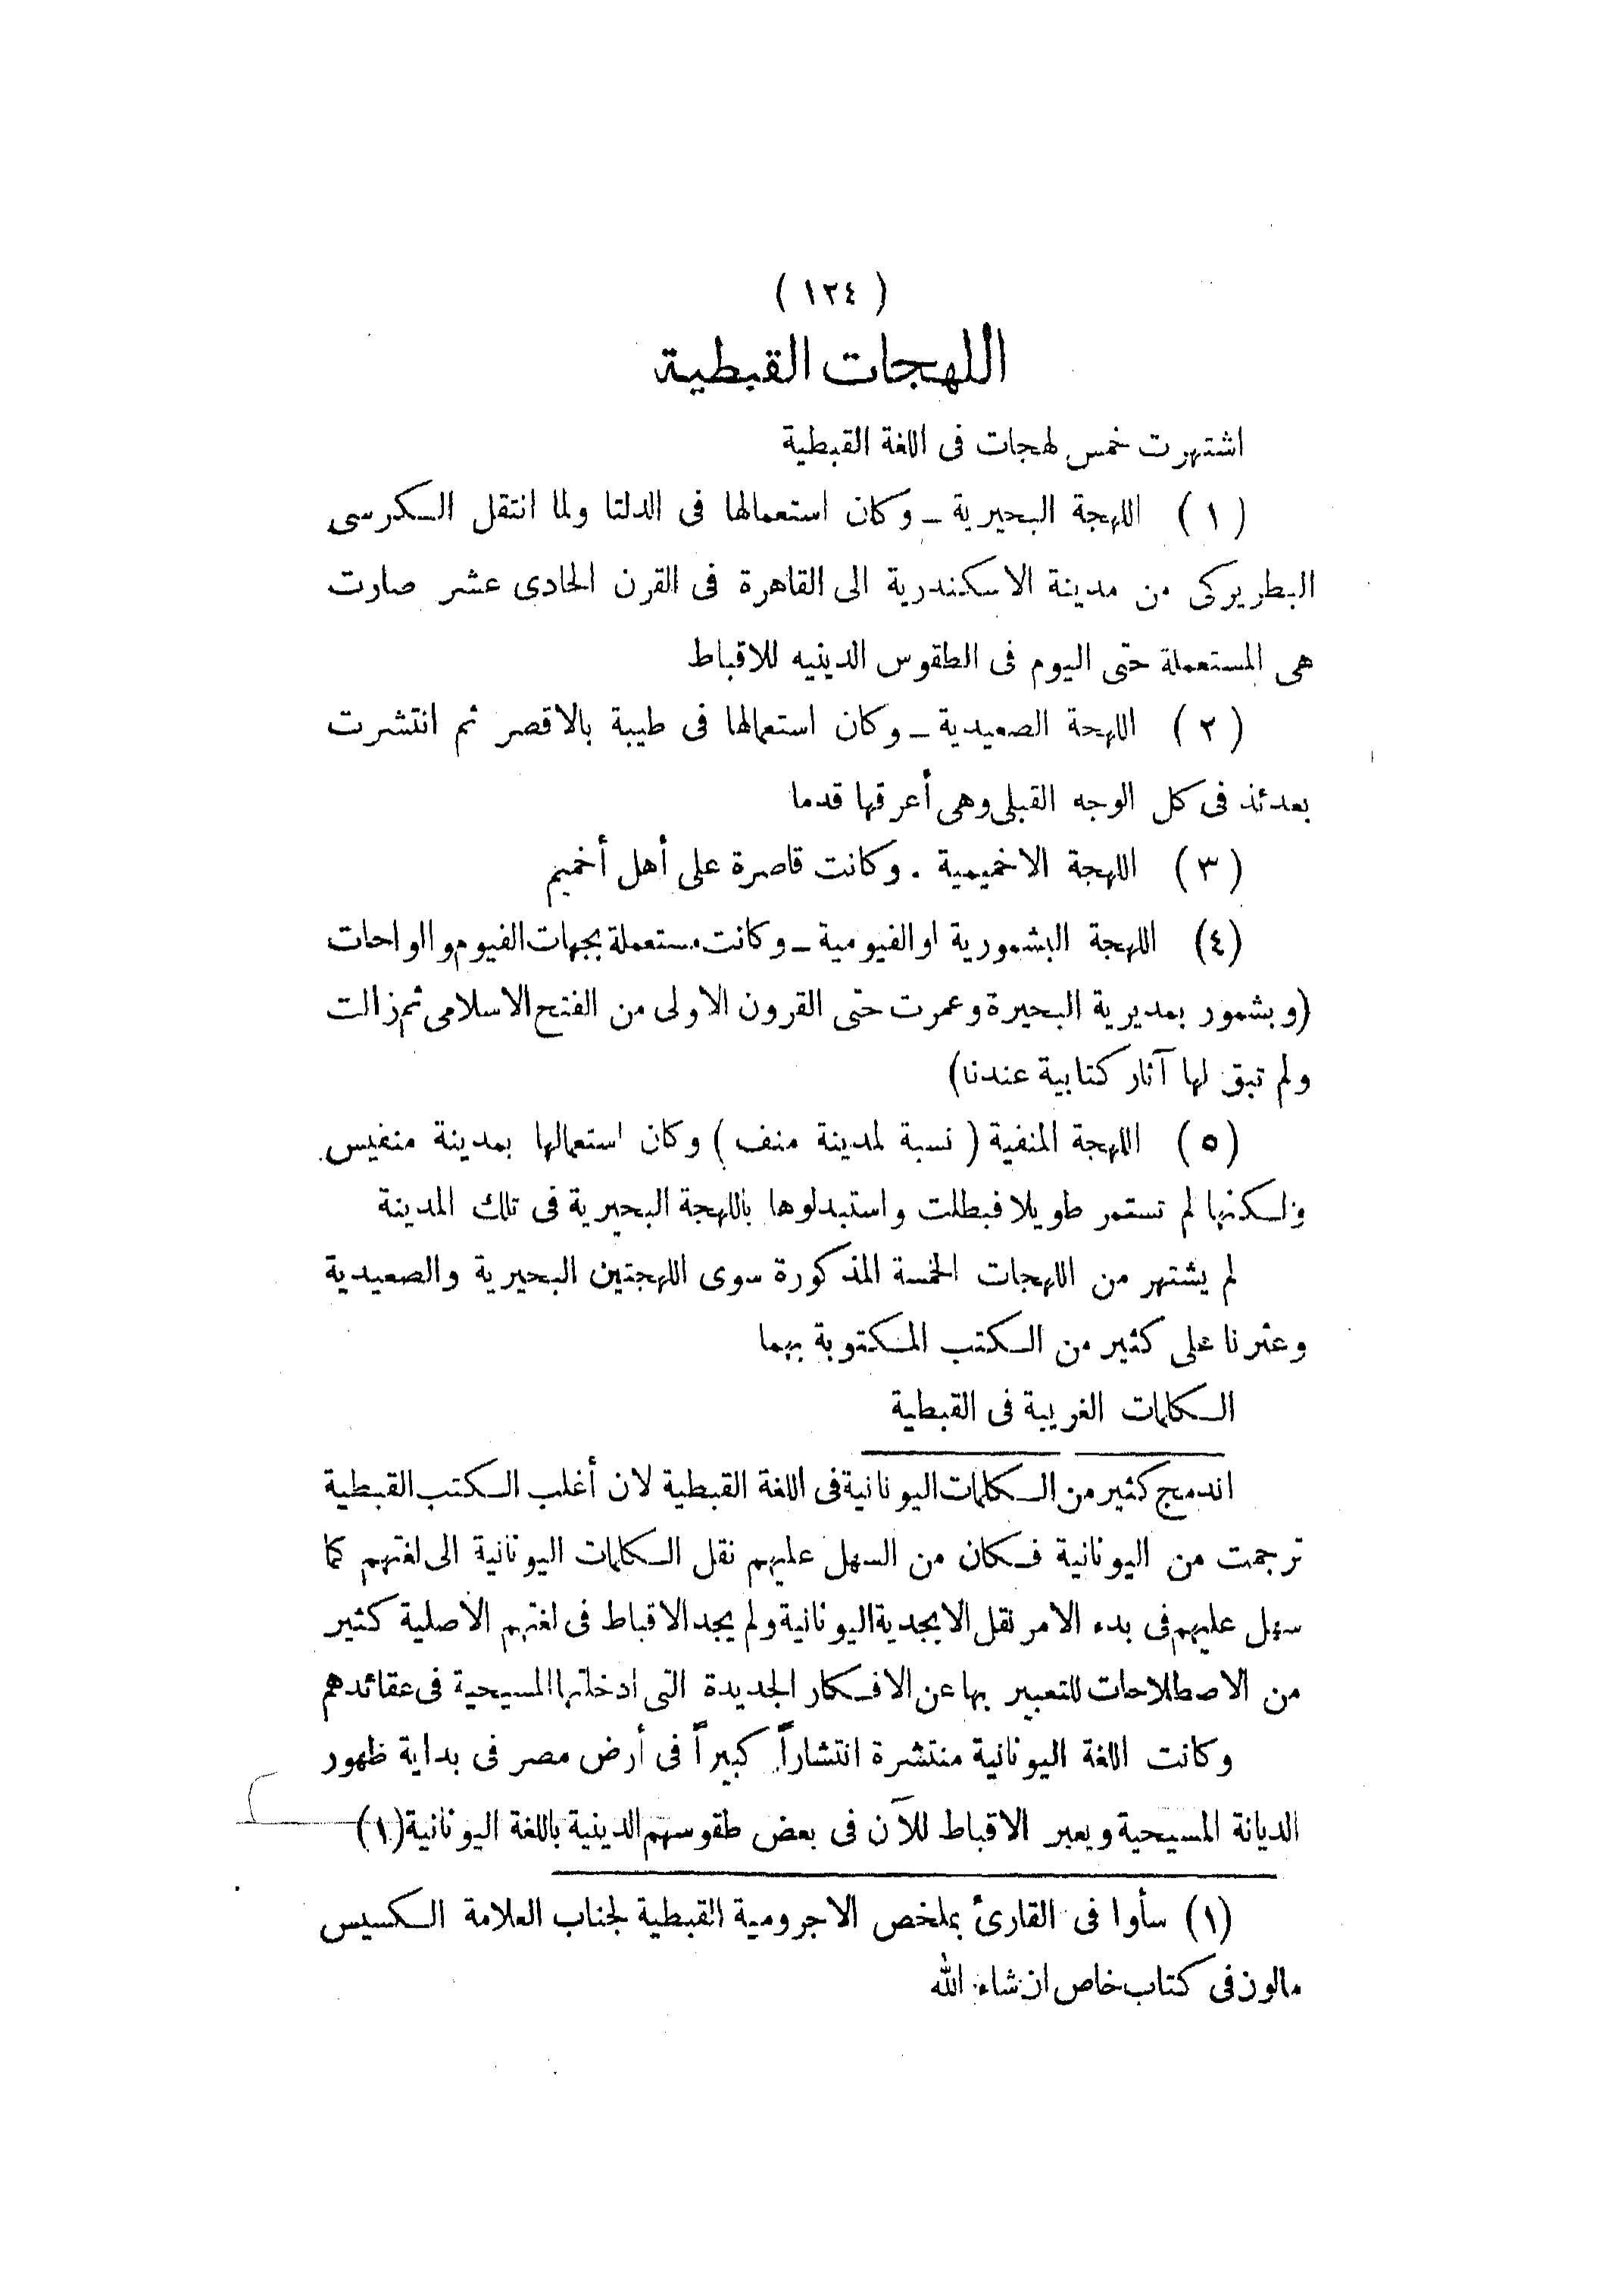 ( ١٢٤ )
اللهجات القبطية
اشتهرت خمس لهجات فى اللغة القبطية
( ١ ) اللهجة البحيرية ـ وكان استعمالها فى الدلتا ولما انتقل الكرسى
البطريركى من مدينة الاسكندرية الى القاهرة فى القرن الحادى عشر صارت
هى المستعملة حتى اليوم فى الطقوس الدينيه للاقباط
( ٢ ) اللهجة الصعيدية ـ وكان استعمالها فى طيبة بالاقصر ثم انتشرت
بعدئذ فى كل الوجه القبلى وهى أعرقها قدما
( ٣ ) اللهجة الاخميمية . وكانت قاصرة على أهل أخميم
(٤) اللهجة البشمورية او الفيومية ـ وكانت مستعملة بجهات الفيوم والواحات
(وبشمور بمديرية البحيرة وعمرت حتى القرون الاولى من الفتح الاسلامى ثم زالت
ولم تبق لها آثار كتابية عندنا)
( ٥ ) اللهجة المنفية ( نسبة لمدينة منف ) وكان استعمالها بمدينة منفيس
ولكنها لم تستمر طويلا فبطلت واستبدلوها باللهجة البحيرية فى تلك المدينة
لم يشتهر من اللهجات الخمسة المذكورة سوى اللهجتين البحيرية والصعيدية
وعثرنا على كثير من الكتب المكتوبة بهما
الكلمات الغريبة فى القبطية
اندمج كثير من الكلمات اليونانية فى اللغة القبطية لان أغلب الكتب القبطية
ترجمت من اليونانية فكان من السهل عليهم نقل الكلمات اليونانية الى لغتهم كما
سهل عليهم فى بدء الامر نقل الابجدية اليونانية ولم يجد الاقباط فى لغتهم الأصلية كثير
من الاصطلاحات للتعبير بها عن الافكار الجديدة التى ادخلتها المسيحية فى عقائدهم
وكانت اللغة اليونانية منتشرة انتشاراً كبيراً فى أرض مصر فى بداية ظهور
الديانة المسيحية ويعبر الاقباط للآن فى بعض طقوسهم الدينية باللغة اليونانية (١)
(١) سأوافى القارئ بملخص الاجرومية القبطية لجناب العلامة الكسيس
مالون فى كتاب خاص ان شاء الله